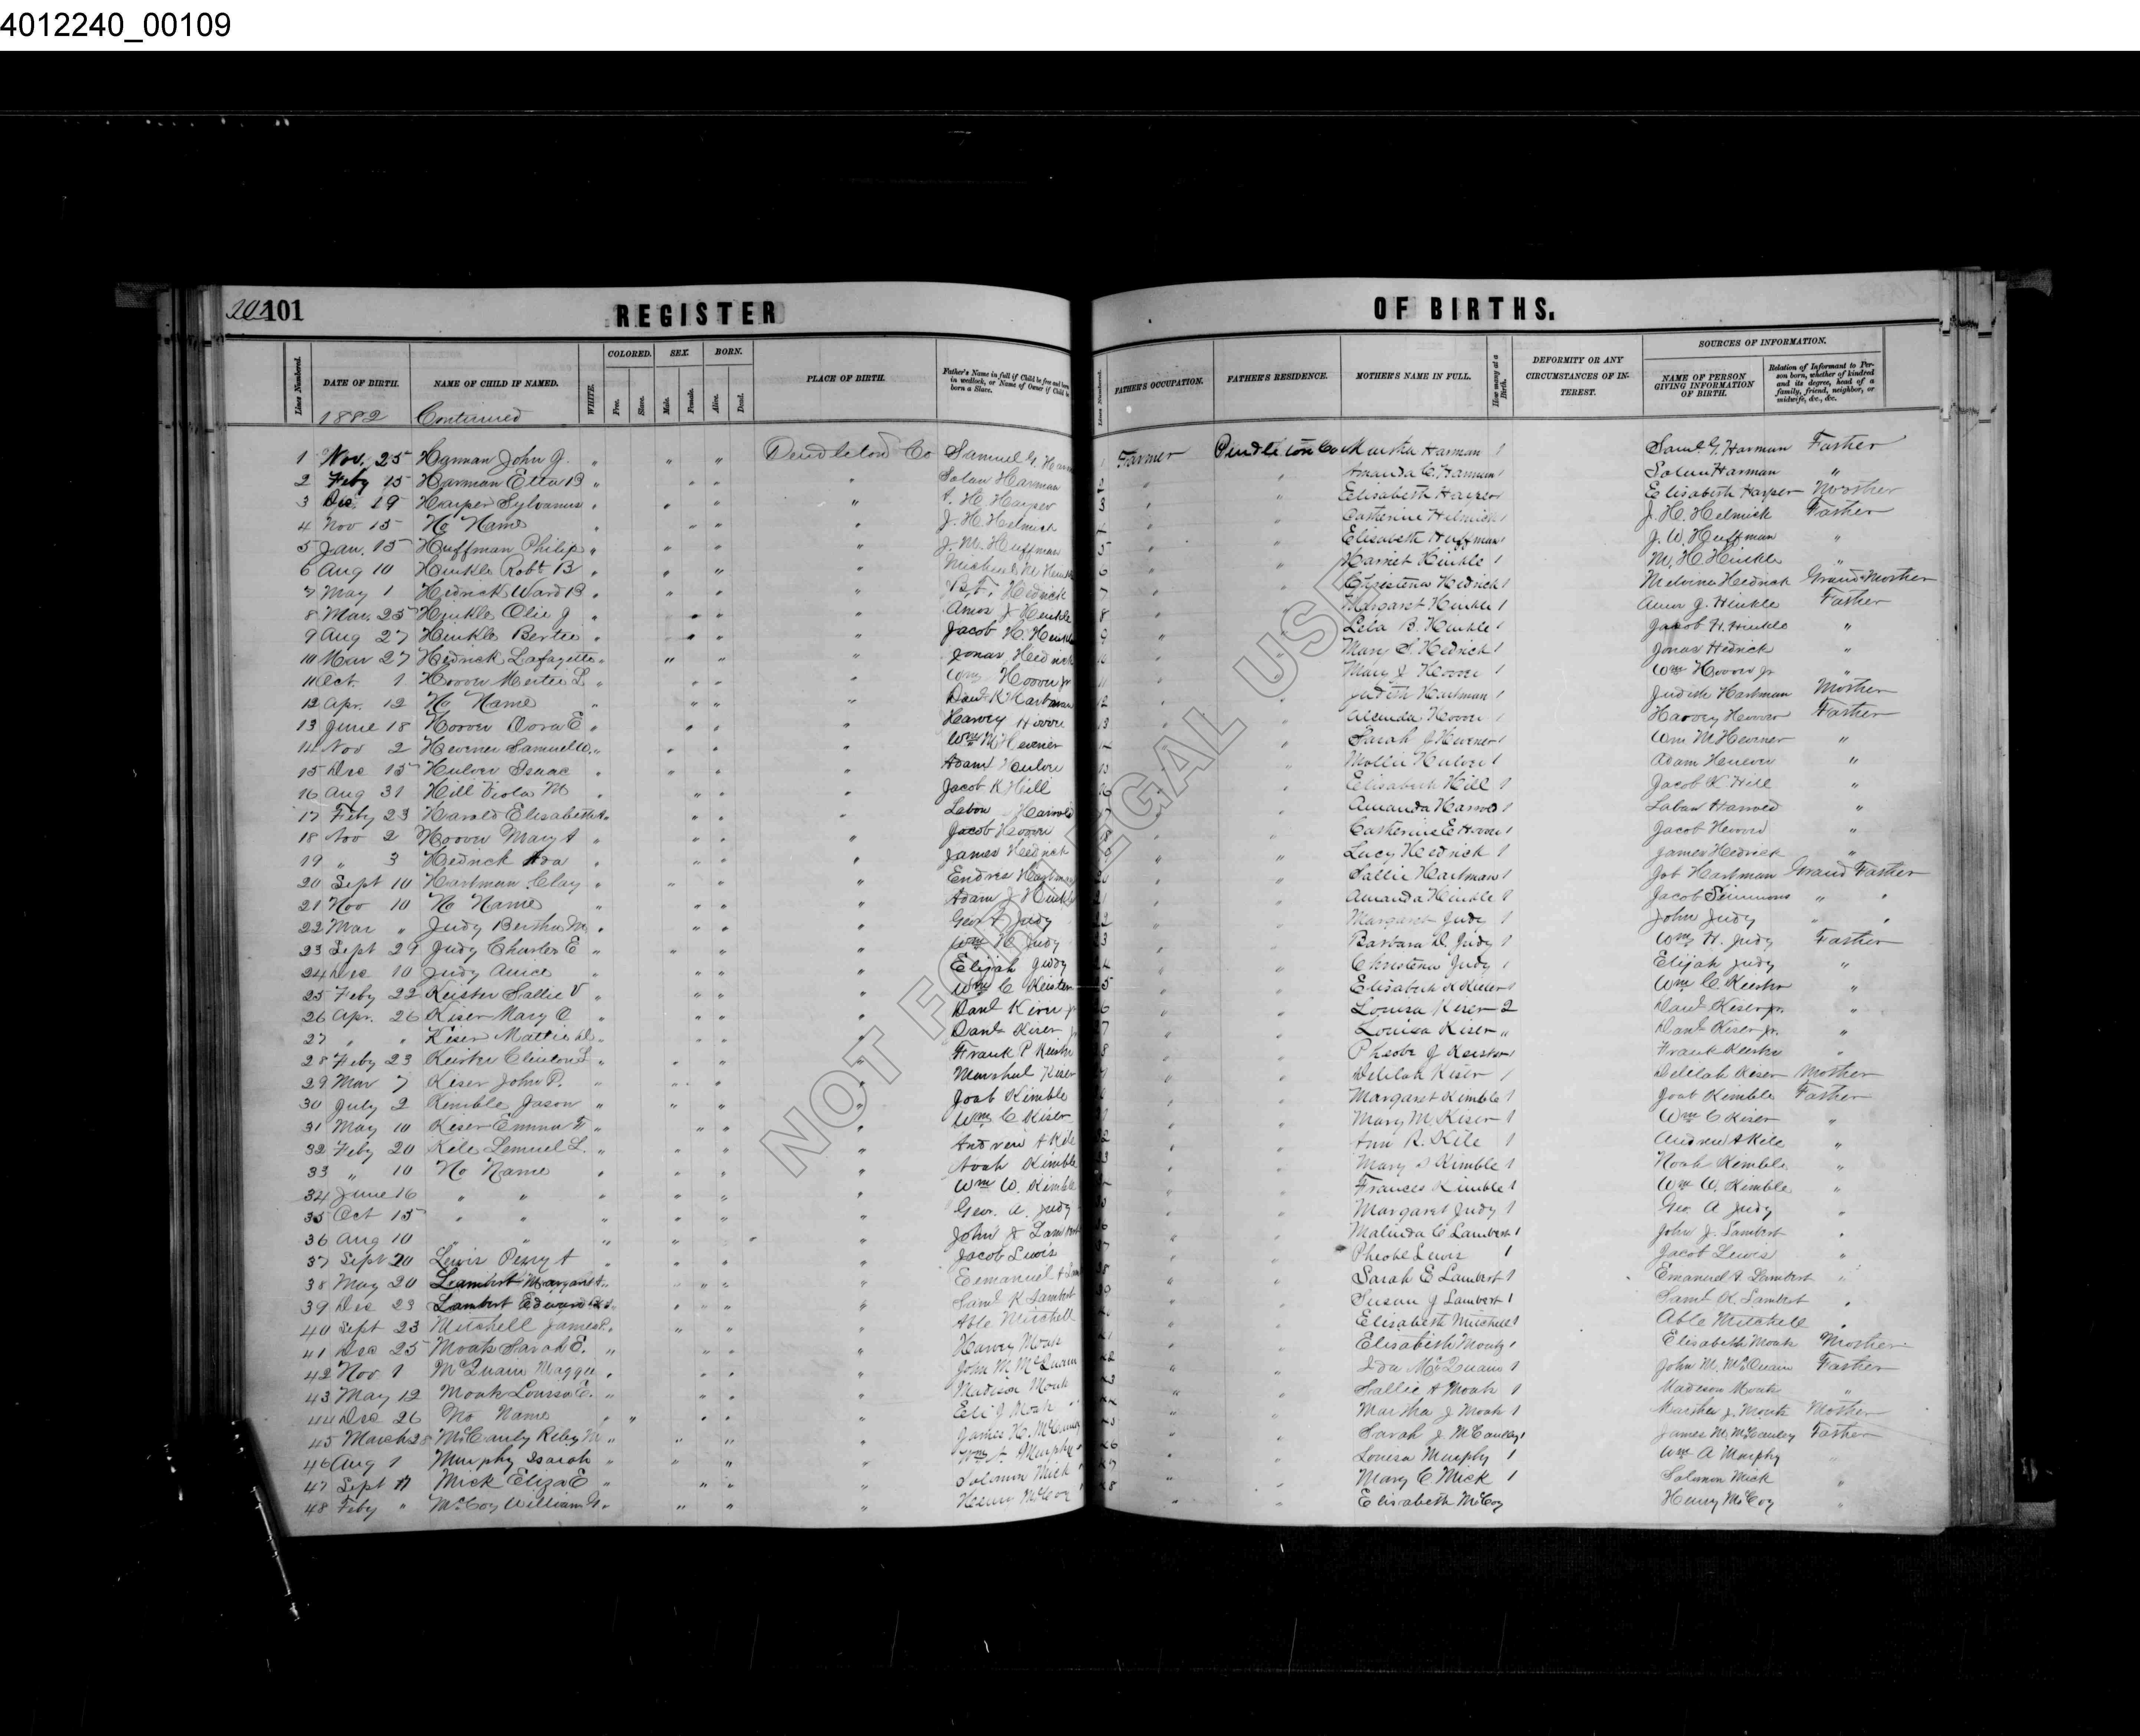 4012240_00109
101
REGISTER OF BIRTHS.
Lines Numbered. DATE OF BIRTH. NAME OF CHILD IF NAMED. WHITE. COLORED. Free. Slave. SEX. Male. Female. BORN. Alive. Dead. PLACE OF BIRTH. Father's Name in full if Child be free and born in wedlock, or Name of Owner if Child be born a Slave. Lines Numbered. FATHER'S OCCUPATION. FATHER'S RESIDENCE. MOTHER'S NAME IN FULL. How many at a Birth. DEFORMITY OR ANY CIRCUMSTANCES OF INTEREST. SOURCES OF INFORMATION. NAME OF PERSON GIVING INFORMATION OF BIRTH. Relation of Informant to Person born, whether of kindred and its degree, head of a family, friend, neighbor, or midwife, &c., &c.
1882 Continued
1 Nov. 25 Harman John J. " " " Pendleton Co Samuel G. Farmer Pendleton Co Martha Harman 1 Saml. G. Harman Father
2 Feby 15 Harman Etta B " " " " Solon Harman " " Amanda C. Harman 1 Solon Harman "
3 Dec. 19 Harper Sylvanus " " " " Harper " " Elisabeth Harper Elisabeth Harper Mother
4 Nov 15 No Name " " " J. H. Helmick " " Catherine Helmick 1 J. H. Helmick Father
5 Jan. 15 Huffman Philip " " " " Huffman " " Elisabeth Huffman 1 J. W. Huffman "
6 Aug 10 Hinkle Robt B " " " " Michael M " " Harriet Hinkle 1 M. H. Hinkle "
7 May 1 Hedrick Ward B " " " " B. F. Hedrick " " Christena Hedrick 1 Melvina Hedrick Grand Mother
8 Mar. 25 Hinkle Olie J " " " " Amos J Hinkle " " Margaret Hinkle 1 Amos J. Hinkle Father
9 Aug 27 Hinkle Bertie " " " " Jacob H. Hinkle " " Lela B. Hinkle 1 Jacob H. Hinkle "
10 Mar 27 Hedrick Lafayette " " " " Jonas Hedrick " " Mary S. Hedrick 1 Jonas Hedrick "
11 Oct. 1 Hoover L " " " " Wm Hoover Jr " " Mary J Hoover 1 Wm Hoover Jr "
12 Apr. 12 No Name " " " " Danl K Hartman " " Judith Hartman 1 Judith Hartman Mother
13 June 18 Hoover Dora E " " " " Harvey Hoover " " Hoover 1 Harvey Hoover Father
14 Nov 2 Hevener Samuel W. " " " " Wm M Hevener " " Sarah J Hevener 1 Wm M Hevener "
15 Dec 15 Isaac " " " " Adam " " Mollie 1 Adam "
16 Aug 31 Hill Viola M " " " " Jacob K Hill " " Elisabeth Hill 1 Jacob K Hill "
17 Feby 23 Harold Elisabeth A " " " " Harold " " Amanda 1 Laban "
18 Nov 2 Hoover Mary A " " " " Jacob Hoover " " Catherine E Hoover 1 Jacob "
19 " 3 Hedrick Ada " " " " James Hedrick " " Lucy Hedrick 1 James Hedrick "
20 Sept 10 Hartman Clay " " " " Hartman " " Sallie Hartman 1 Job Hartman Grand Father
21 Nov 10 No Name " " " " Adam J Hinkle " " Amanda Hinkle 1 Jacob Simmons " "
22 Mar " Judy Bertha M. " " " " Geo A Judy " " Margaret Judy 1 John Judy " "
23 Sept 29 Judy Charles E " " " " Wm H Judy " " Barbara D. Judy 1 Wm H. Judy Father
24 Dec 10 Judy " " " " Elijah Judy " " Christena Judy 1 Elijah Judy "
25 Feby 22 Keister Sallie V " " " " Wm C Keister " " Elisabeth K 1 Wm C Keister "
26 Apr. 26 Kiser Mary C " " " " Danl Kiser Jr " " Louisa Kiser 2 Danl Kiser Jr. "
27 " " Kiser Mattie " " " " Danl Kiser Jr " " Louisa Kiser " Danl Kiser Jr. "
28 Feby 23 Keister Clinton L " " " " Frank P Keister " " Pheobe J Keister 1 Frank Keister "
29 Mar 7 Kiser John P. " " " " Marshal Kiser " " Delilah Kiser 1 Delilah Kiser Mother
30 July 2 Kimble Jason " " " " Joab Kimble " " Margaret Kimble 1 Joab Kimble Father
31 May 10 Kiser Emma F " " " " Wm C Kiser " " Mary M. Kiser 1 Wm C Kiser "
32 Feby 20 Kile Lemuel L. " " " " Andrew A Kile " " Ann R. Kile 1 Andrew A Kile "
33 " 10 No Name " " " " Noah Kimble " " Mary Kimble 1 Noah Kimble "
34 June 16 " " " " " " Wm W. Kimble " " Frances Kimble 1 Wm W. Kimble "
35 Oct 15 " " " " " " Geo. A. Judy " " Margaret Judy 1 Geo. A Judy "
36 Aug 10 " " " " " " John J Lambert " " Malinda C Lambert 1 John J. Lambert "
37 Sept 20 Lewis Perry A " " " " Jacob Lewis " " Pheobe Lewis 1 Jacob Lewis "
38 May 20 Lambert Margaret A. " " " " Emanuel A " " Sarah E Lambert 1 Emanuel A. Lambert "
39 Dec 23 Lambert Edward " " " " Saml K Lambert " " Susan J Lambert 1 Saml K. Lambert "
40 Sept 23 Mitchell James " " " " Able Mitchell " " Elisabeth Mitchell 1 Able Mitchell "
41 Dec 25 Moats Sarah E. " " " " Harvey Moats " " Elisabeth Moats 1 Elisabeth Moats Mother
42 Nov 1 McQuain Maggie " " " " John M. McQuain " " Ida McQuain 1 John M. McQuain Father
43 May 12 Louisa C. " " " " Madison " " Sallie A 1 Madison "
44 Dec 26 No Name " " " " " Eli J " " Martha J 1 Martha J. Mother
45 March 28 McCauly Riley M " " " " James " " Sarah J. McCauley 1 James M. McCauley Father
46 Aug 1 Murphy " " " " Wm A Murphy " " Louisa Murphy 1 Wm A Murphy "
47 Sept 11 Mick Eliza E " " " " Solomon Mick " " Mary C Mick 1 Solomon Mick "
48 Feby " McCoy William " " " " Henry McCoy " " Elisabeth McCoy Henry McCoy "
NOT FOR LEGAL USE